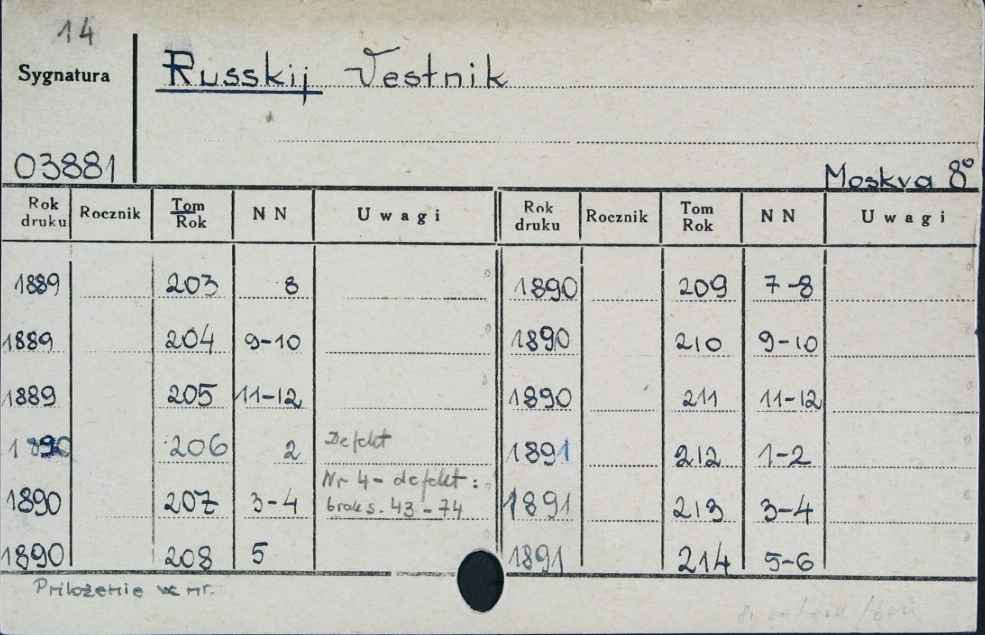 14
Sygnatura
Russkij Vestnik
03881
Moskva 8°
Rok druku Rocznik Tom Rok N N Uwagi Rok druku Rocznik Tom Rok N N Uwagi
1889 203 8 1890 209 7-8
1889 204 9-10 1890 210 9-10
1889 205 11-12 1890 211 11-12
1890 206 2 Defekt 1891 212 1-2
1890 207 3-4 Nr 4 - defekt: brak s. 43-74 1891 213 3-4
1890 208 5 1891 214 5-6
Priloženie w nr.